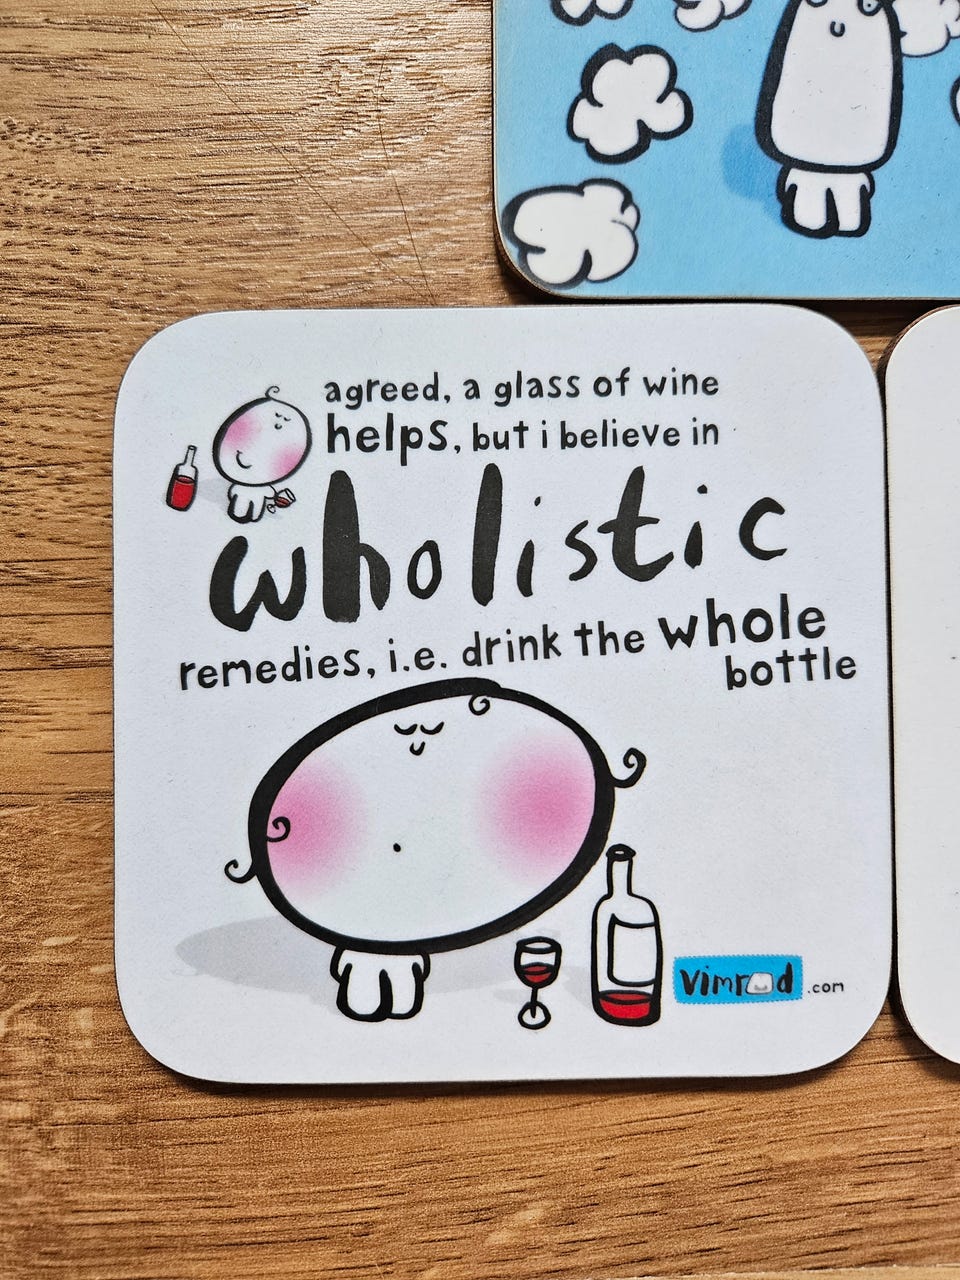 agreed, a glass of wine
helps, but i believe in
wholistic
remedies, i.e. drink the whole
bottle
vimrod.com